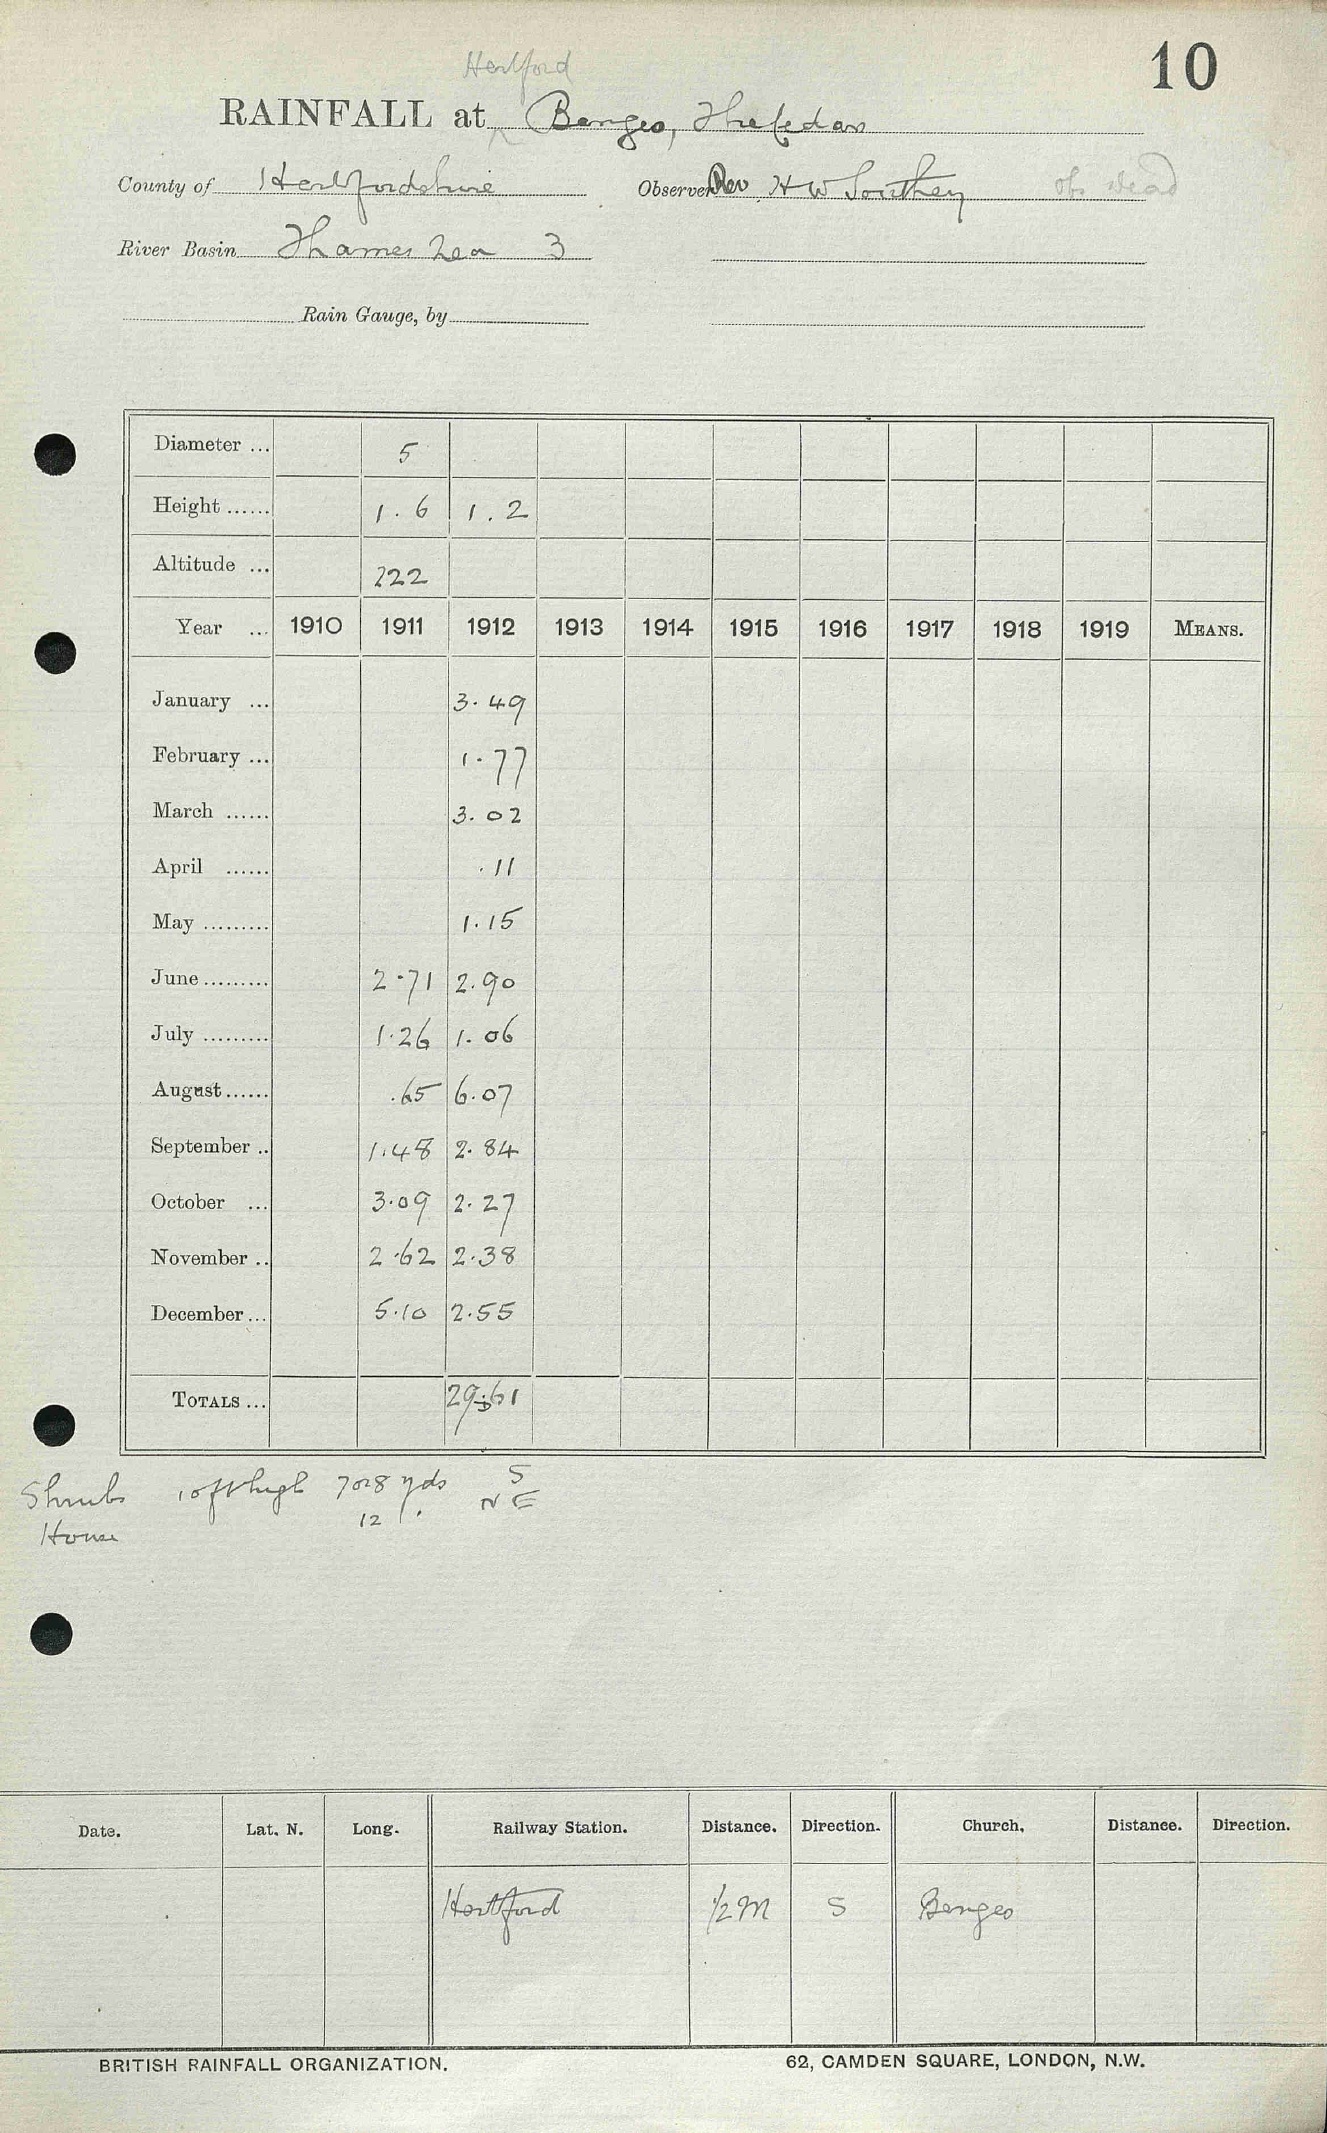 10
Hertford
RAINFALL at Bengeo,
County of Hertfordshire Observer Rev. H W Southey obs dead
River Basin Thames Lea 3
Rain Gauge, by
Diameter ... 5
Height ...... 1.6 1.2
Altitude ... 222
Year ... 1910 1911 1912 1913 1914 1915 1916 1917 1918 1919 MEANS.
January ... 3.49
February ... 1.77
March ...... 3.02
April ...... .11
May ......... 1.15
June ......... 2.71 2.90
July ......... 1.26 1.06
August ...... .65 6.07
September .. 1.48 2.84
October ... 3.09 2.27
November .. 2.62 2.38
December ... 5.10 2.55
TOTALS ... 29.61
Shrubs 10 ft high 7 or 8 yds S
House 12 " NE
Date. Lat. N. Long. Railway Station. Distance. Direction. Church. Distance. Direction.
Hertford 1/2 M S Bengeo
BRITISH RAINFALL ORGANIZATION. 62, CAMDEN SQUARE, LONDON, N.W.